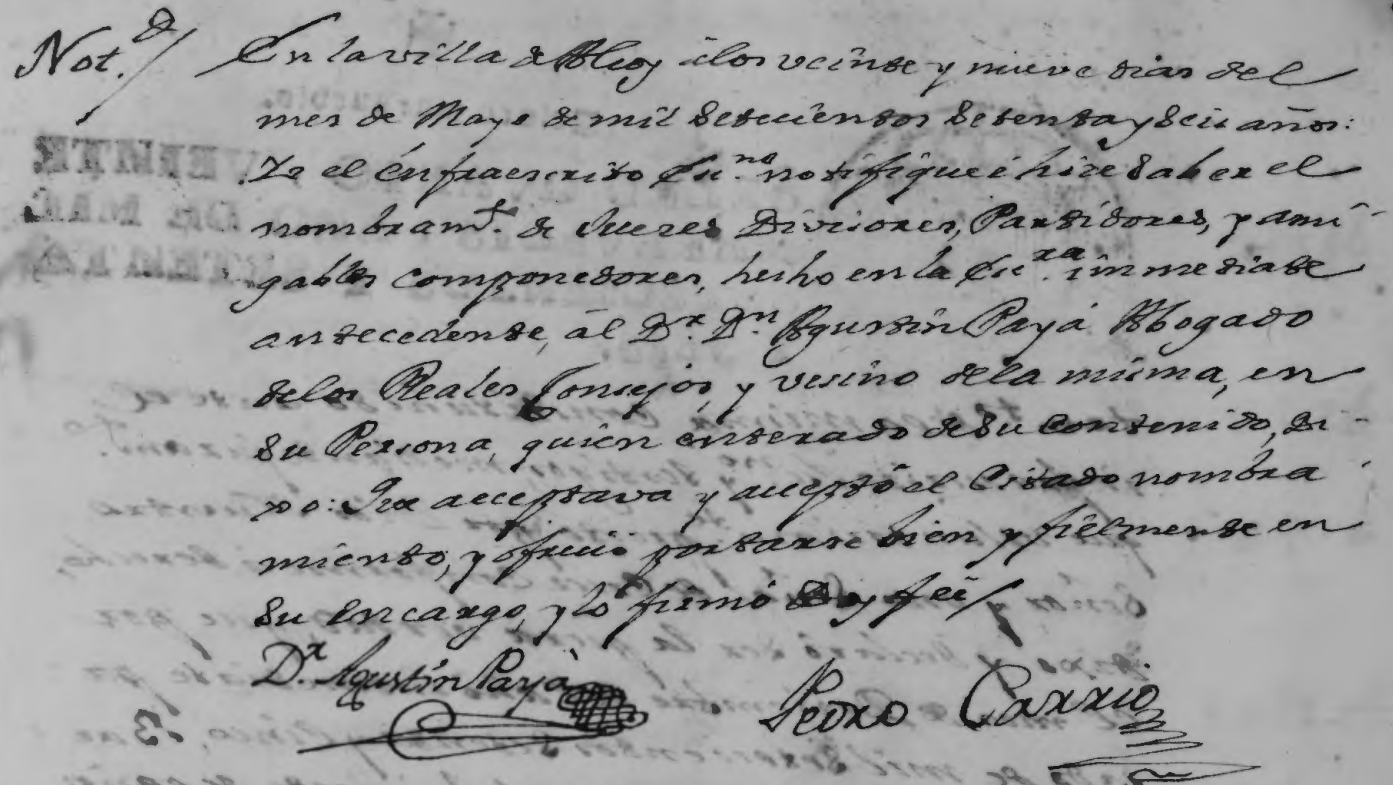 Not.ª/ En la villa de Alcoy á los veinte y nueve dias del
mes de Mayo de mil setecientos setenta y seis años:
Yo el Enfraescrito Esc.no notifiqué é hize saber el
nombram.to de Jueces Divisores, Partidores, y ami-
gables componedores, hecho en la Esc.ra immediate
antecedente, al D.r D.n Agustin Payá Abogado
de los Reales Consejos, y vesino de la misma, en
su Persona, quien enterado de su contenido, Di-
xo: Que acceptava y acceptó el Citado nombra-
miento, y ofreció portarse bien y fielmente en
su encargo, y lo firmó Doy feé/
D.r Agustin Payá
Pedro Carrio